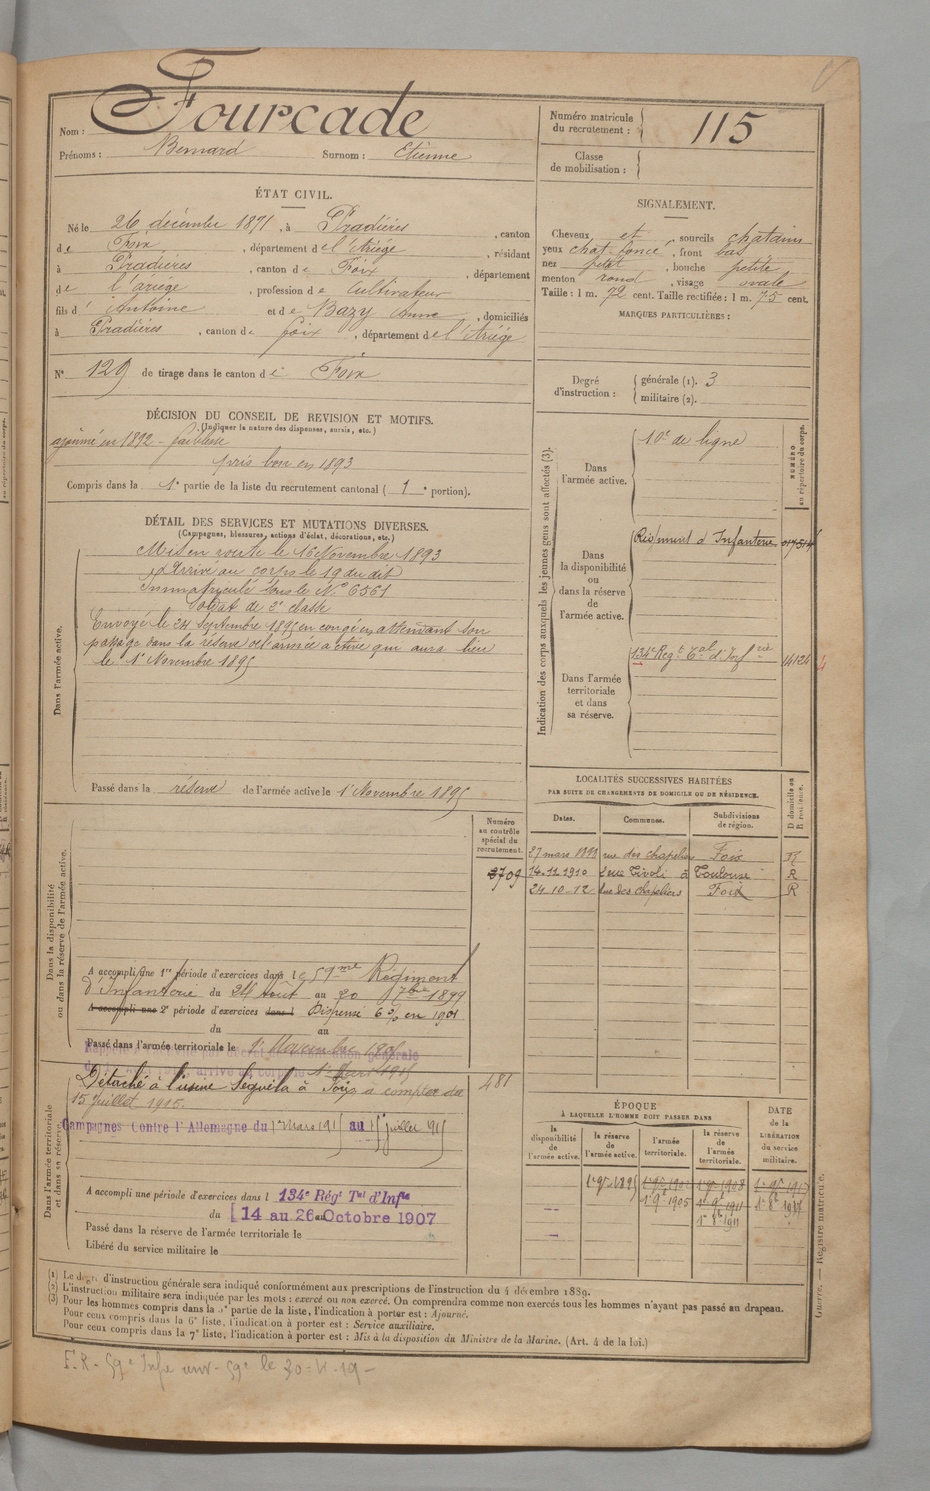 Nom : Fourcade
Prénoms : Bernard Surnom : Etienne
Numéro matricule du recrutement : 115
Classe de mobilisation :
ÉTAT CIVIL.
Né le 26 décembre 1871, à Pradières, canton
de Foix, département de l'Ariège, résidant
à Pradières, canton de Foix, département
de l'ariège, profession de Cultivateur
fils d'Antoine et de Bazy Anne, domiciliés
à Pradières, canton de foix, département de l'Ariège
N° 129 de tirage dans le canton de Foix
SIGNALEMENT.
Cheveux et, sourcils chatains
yeux chat. foncé, front bas
nez petit, bouche petite
menton rond, visage ovale
Taille : 1 m. 72 cent. Taille rectifiée : 1 m. 75 cent.
MARQUES PARTICULIÈRES :
Degré d'instruction : générale (1). 3
militaire (2).
DÉCISION DU CONSEIL DE REVISION ET MOTIFS.
(Indiquer la nature des dispenses, sursis, etc.)
ajourné en 1892 - faiblesse
pris bon en 1893
Compris dans la 1e partie de la liste du recrutement cantonal ( 1e portion).
DÉTAIL DES SERVICES ET MUTATIONS DIVERSES.
(Campagnes, blessures, actions d'éclat, décorations, etc.)
Dans l'armée active.
Mis en route le 16 Novembre 1893
Arrivé au corps le 19 du dit
Immatriculé sous le N° 6361
Soldat de 2e classe
Envoyé le 24 Septembre 1895 en congé en attendant son
passage dans la réserve de l'armée active qui aura lieu
le 1er Novembre 1895
Passé dans la réserve de l'armée active le 1er Novembre 1895
Indication des corps auxquels les jeunes gens sont affectés (3).
NUMÉRO au répertoire du corps.
Dans l'armée active.
10e de ligne
Dans la disponibilité ou dans la réserve de l'armée active.
Régiment d'Infanterie
Dans l'armée territoriale et dans sa réserve.
134e Regt Tal d'Infrie 14124
LOCALITÉS SUCCESSIVES HABITÉES
PAR SUITE DE CHANGEMENTS DE DOMICILE OU DE RÉSIDENCE.
Dates. Communes. Subdivisions de région. D domicile ou R résidence.
27 mars rue des chapeliers Foix R
14-11-1910 rue Tivoli à Toulouse R
24-10-12 Rue des chapeliers Foix R
Dans la disponibilité ou dans la réserve de l'armée active.
Numéro au contrôle spécial du recrutement.
3709
A accompli une 1re période d'exercices dans le 59me Régiment
d'Infanterie du 24 Août au 20 7bre 1899
A accompli une 2e période d'exercices dans l Dispense 6 % en 1901
du au
Passé dans l'armée territoriale le 1er Novembre
Dans l'armée territoriale et dans sa réserve.
Détaché à l'usine Sequéla à Foix à compter du 481
15 Juillet 1915.
Campagnes Contre l'Allemagne du 1 Mars 1915 au 15 juillet 915
A accompli une période d'exercices dans l 134e Régt Tal d'Infie
du 14 au 26 Octobre 1907
Passé dans la réserve de l'armée territoriale le
Libéré du service militaire le
ÉPOQUE
À LAQUELLE L'HOMME DOIT PASSER DANS
la disponibilité de l'armée active. la réserve de l'armée active. l'armée territoriale. la réserve de l'armée territoriale.
DATE DE LA LIBÉRATION du service militaire.
(1) Le degré d'instruction générale sera indiqué conformément aux prescriptions de l'instruction du 4 décembre 1889.
(2) L'instruction militaire sera indiquée par les mots : exercé ou non exercé. On comprendra comme non exercés tous les hommes n'ayant pas passé au drapeau.
(3) Pour les hommes compris dans la 5e partie de la liste, l'indication à porter est : Ajourné.
Pour ceux compris dans la 6e liste, l'indication à porter est : Service auxiliaire.
Pour ceux compris dans la 7e liste, l'indication à porter est : Mis à la disposition du Ministre de la Marine. (Art. 4 de la loi.)
Guerre. — Registre matricule.